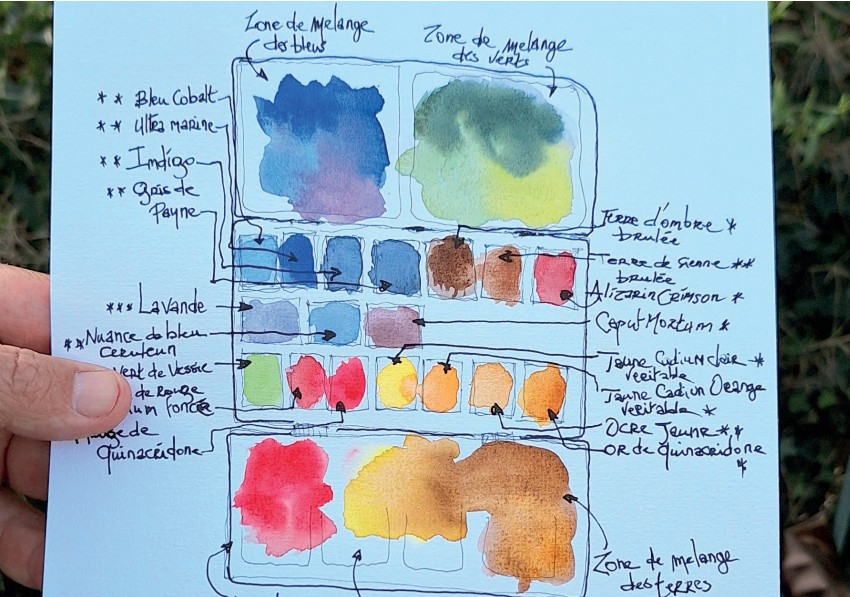 Zone de melange
des bleus
Zone de melange
des verts
** Bleu Cobalt
** Ultra marine
** Indigo
** Gris de
Payne
*** Lavande
** Nuance de bleu
ceruleum
vert de Vessie
de Rouge
ium Foncée
de
Quinacridone
Terre d'ombre *
brulée
Terre de Sienne **
brulée
Alizarin Crimson *
Caput Mortum *
Jaune Cadium clair *
veritable
Jaune Cadium Orange
veritable *
Ocre Jaune **
or de Quinacridone
*
Zone de melange
des terres